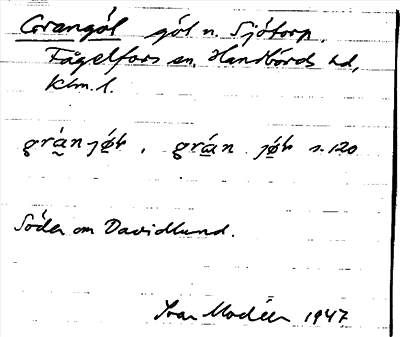 Grangöl göl n. Sjötorp,
Fågelfors sn, Handbörds hd,
Klm. l.
grànjø̀ḷ, gràn jø̀ḷ s. 120
Söder om Davidlund.
Ivar Modéer 1947